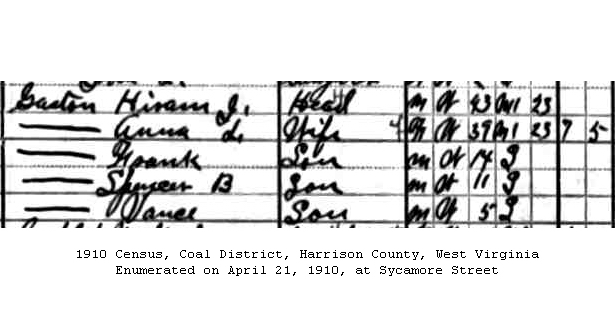 Gaston Hiram J. Head m W 43 M1 23
Anna L. Wife F W 39 M1 23 7 5
Frank Son m W 14 S
Spencer B Son m W 11 S
Vance Son m W 5 S
1910 Census, Coal District, Harrison County, West Virginia
Enumerated on April 21, 1910, at Sycamore Street